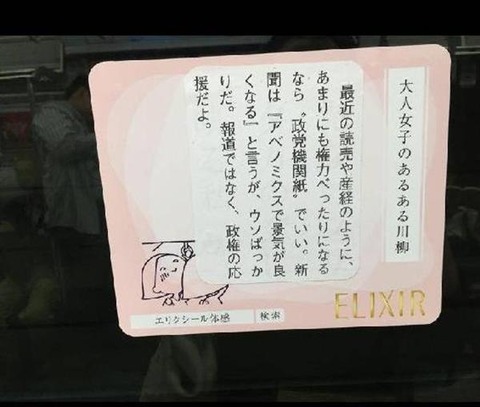 大人女子のあるある川柳
最近の読売や産経のように、
あまりにも権力べったりになる
なら〝政党機関紙〟でいい。新
聞は『アベノミクスで景気が良
くなる』と言うが、ウソばっか
りだ。報道ではなく、政権の応
援だよ。
ELIXIR
エリクシール体感 検索